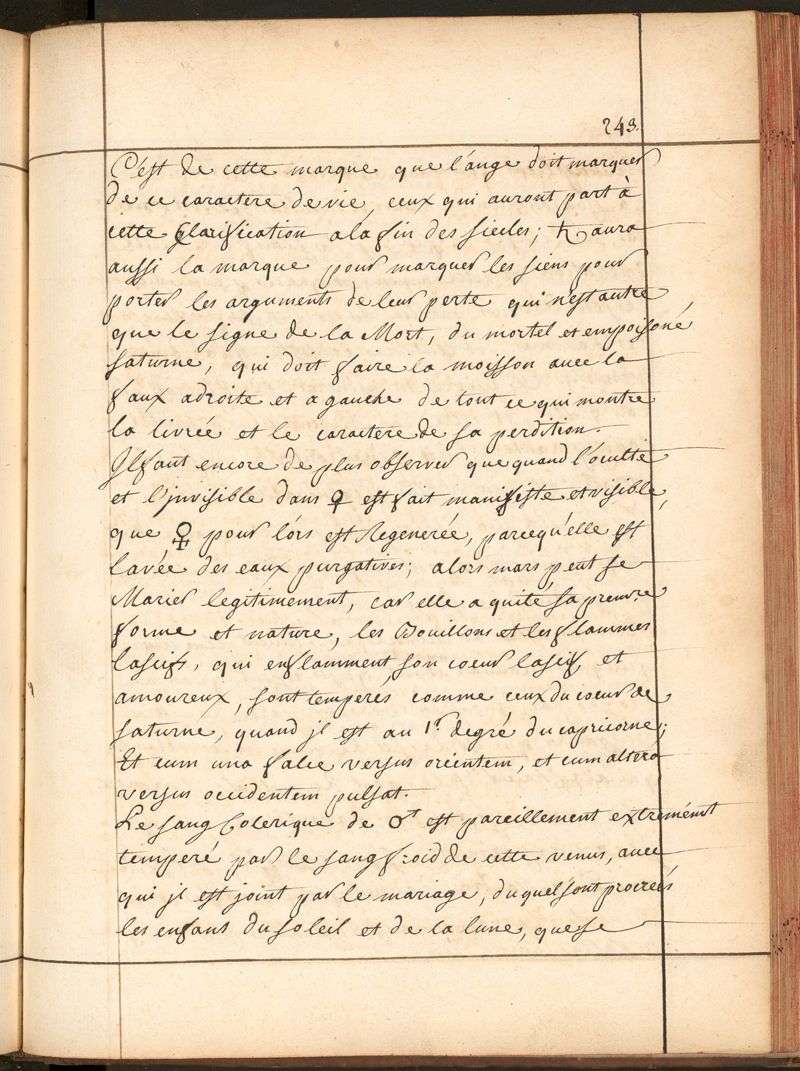 243.
C'est de cette marque que l'ange doit marquer
de ce caractere de vie, ceux qui auront part à
cette Glarification a la fin des siecles; ♄ aura
aussi la marque pour marquer les siens pour
porter les arguments de leur perte qui n'est autre
que le signe de la Mort, du mortel et empoisoné
saturne, qui doit faire la moisson avec la
faux adroite et a gauche de tout ce qui montre
la livrée et le caractere de sa perdition.
Il faut encore de plus observer que quand l'oculte
et l'jnvisible dans ♀ est fait manifeste et visible,
que ♀ pour lórs est Regenerée, parcequ'elle est
lavée des eaux purgatives; alors mars peut se
Marier legitimement, car elle a quité sa premre
forme et nature, les Bouillons et les flammes
lascifs, qui enflamment son coeur lascif et
amoureux, sont temperés comme ceux du coeur de
saturne, quand jl est au 1r degré du capricorne;
Et cum una falce versus orientem, et cum altera
versus occidentem pulsat.
Le sang Colerique de ♂ est pareillement extrémemt
temperé par le sang froid de cette venus, avec
qui jl est joint par le mariage, du quel sont procreés
les enfans du soleil et de la lune, que se